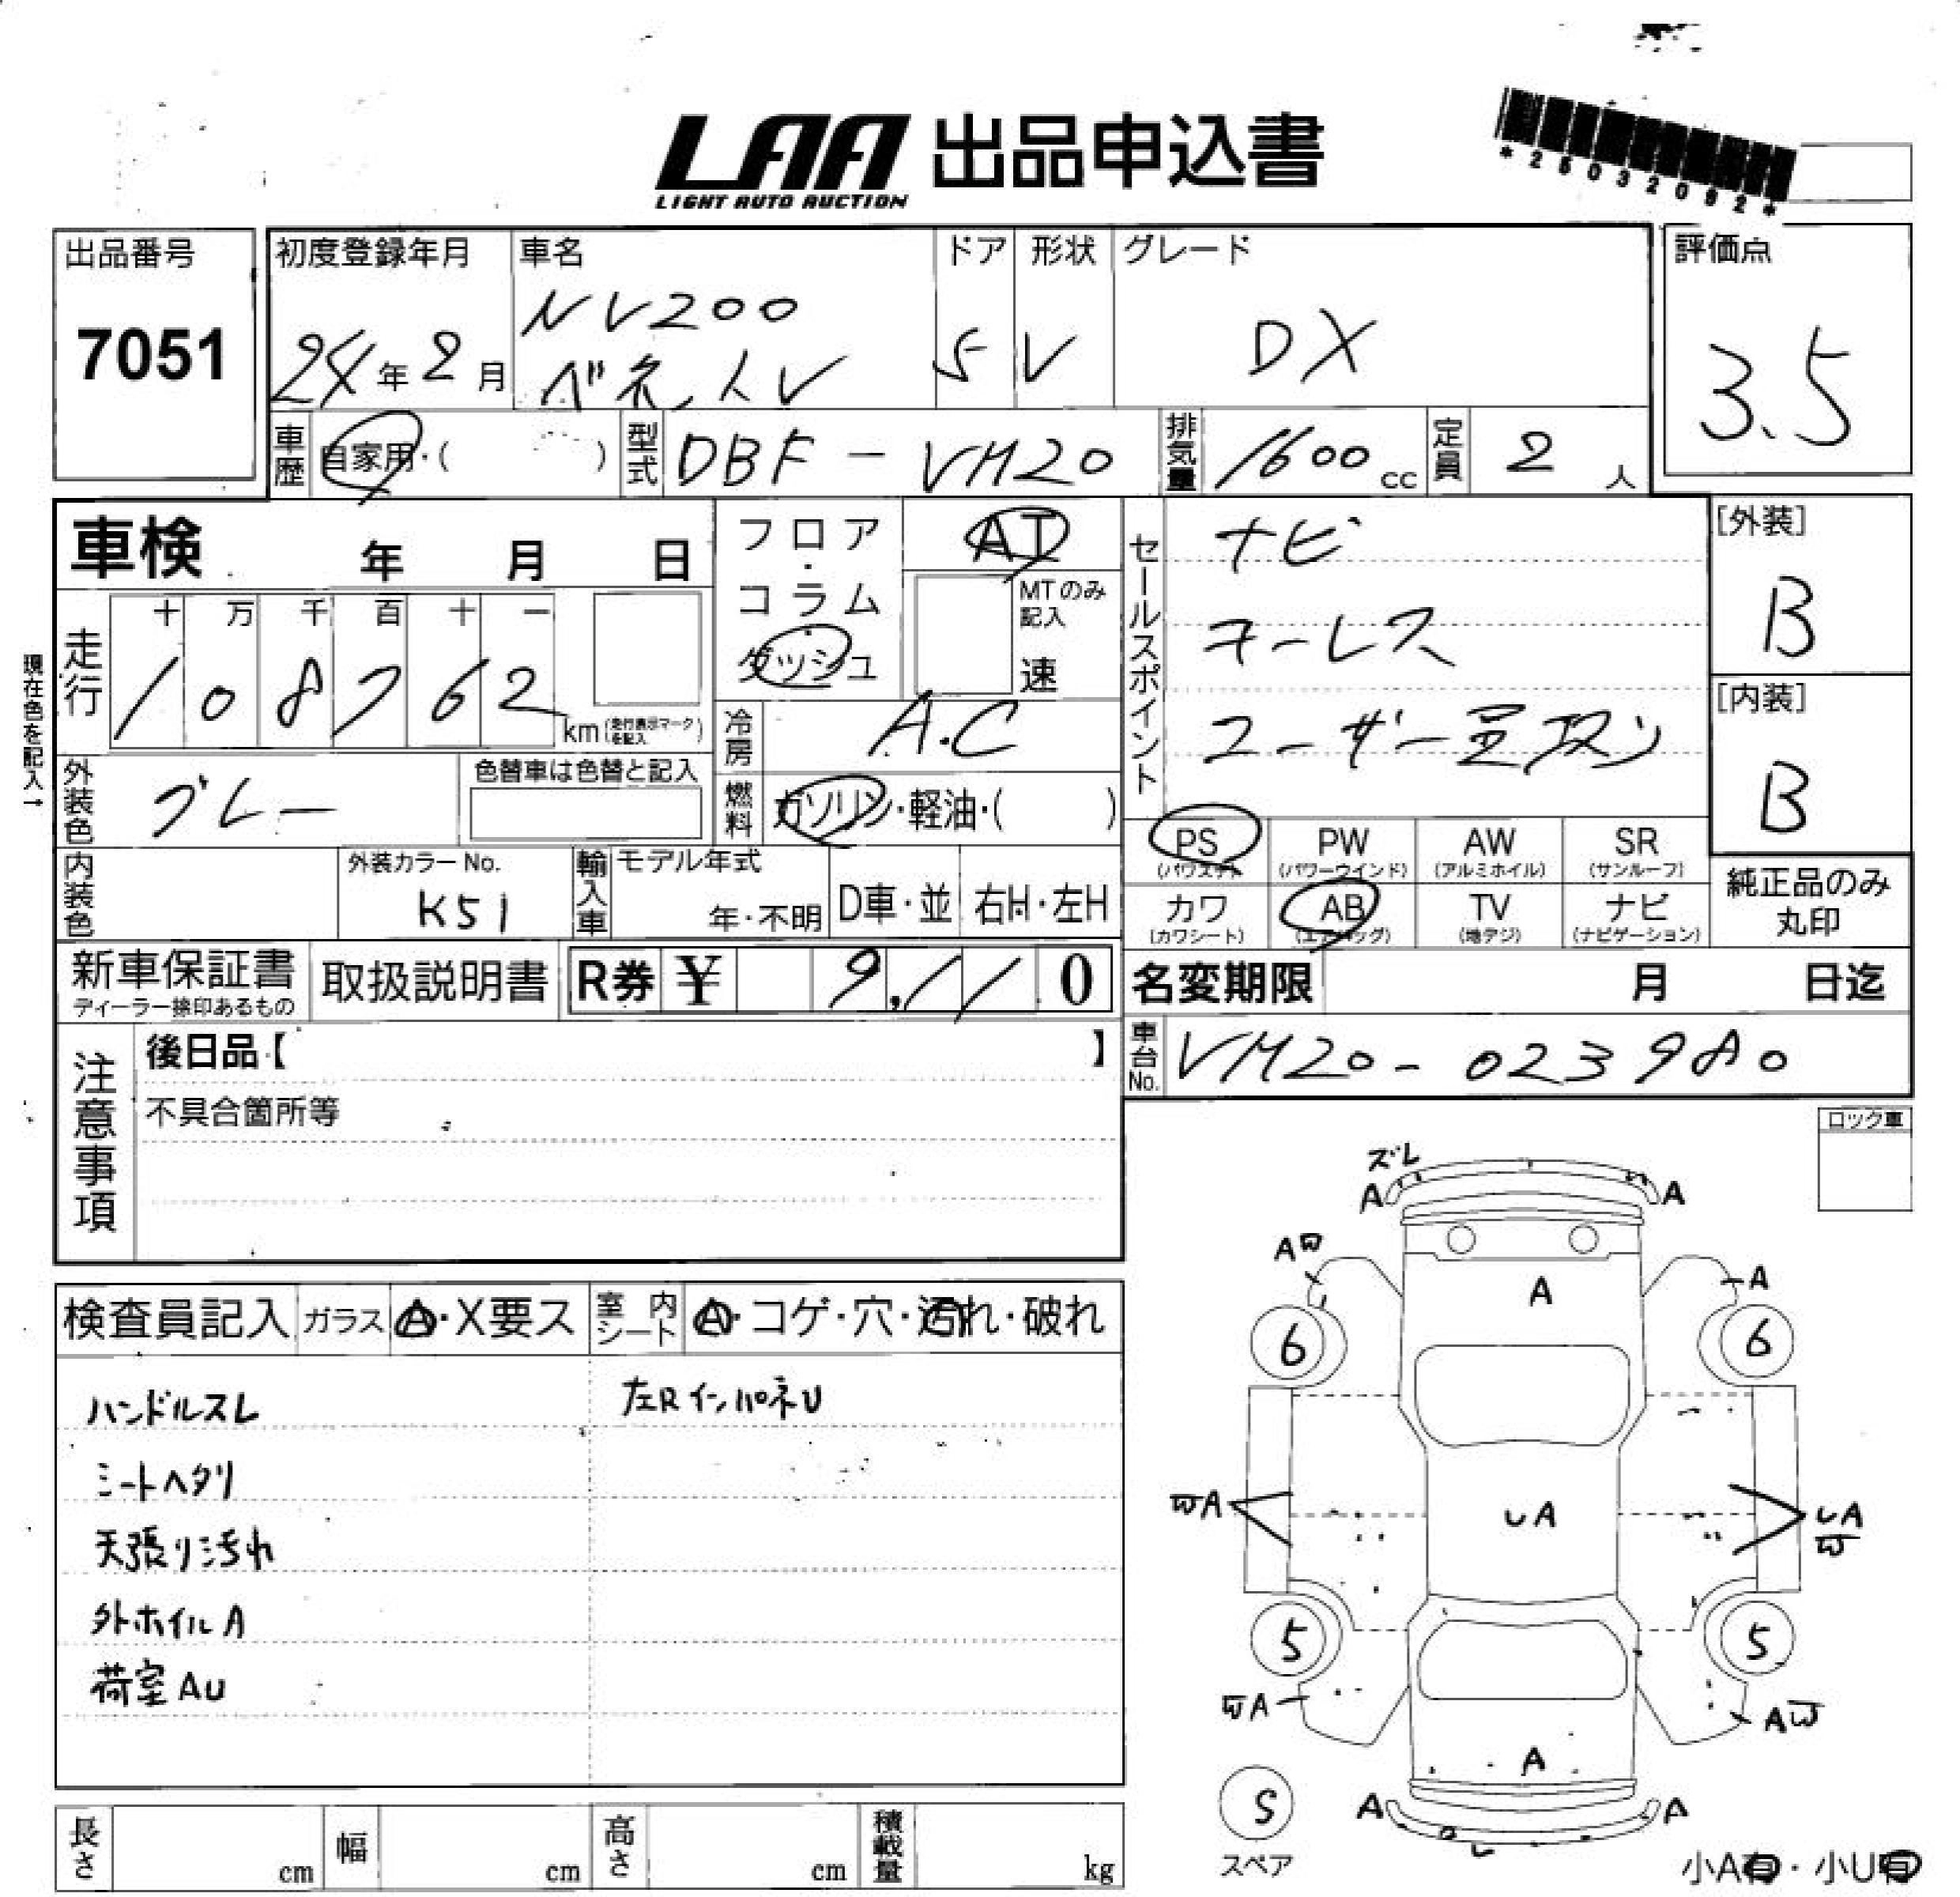 LAA 出品申込書
LIGHT AUTO AUCTION
*25032092*
出品番号
7051
初度登録年月
24年2月
車名
NV200
バネットV
ドア
5
形状
V
グレード
DX
評価点
3.5
車歴
自家用・( )
型式
DBF-VM20
排気量
1600cc
定員
2人
車検 年 月 日
フロア・コラム
ダッシュ
AT
MTのみ記入
速
現在色を記入→
走行
十 万 千 百 十 一
108762
km(走行表示マークを記入)
冷房
A.C
燃料
ガソリン・軽油・( )
外装色
グレー
色替車は色替と記入
内装色
外装カラーNo.
K51
輸入車
モデル年式
年・不明
D車・並
右H・左H
セールスポイント
ナビ
キーレス
ユーザー買取り
[外装]
B
[内装]
B
PS
(パワステ)
PW
(パワーウインド)
AW
(アルミホイル)
SR
(サンルーフ)
カワ
(カワシート)
AB
(エアバッグ)
TV
(地デジ)
ナビ
(ナビゲーション)
純正品のみ丸印
新車保証書
ディーラー捺印あるもの
取扱説明書
R券 ¥ 9,110
名変期限 月 日迄
車台No.
VM20-023980
注意事項
後日品【 】
不具合箇所等
ロック車
検査員記入
ガラス
A・X要ス
室内シート
A・コゲ・穴・汚れ・破れ
ハンドルスレ
シートヘタリ
天張り汚れ
外ホイルA
荷室AU
左RインパネU
ズレ
A
A
A
A
A
6
6
UA
UA
WA
W
5
5
WA
AW
A
A
A
S
スペア
小A有・小U有
長さ cm
幅 cm
高さ cm
積載量 kg